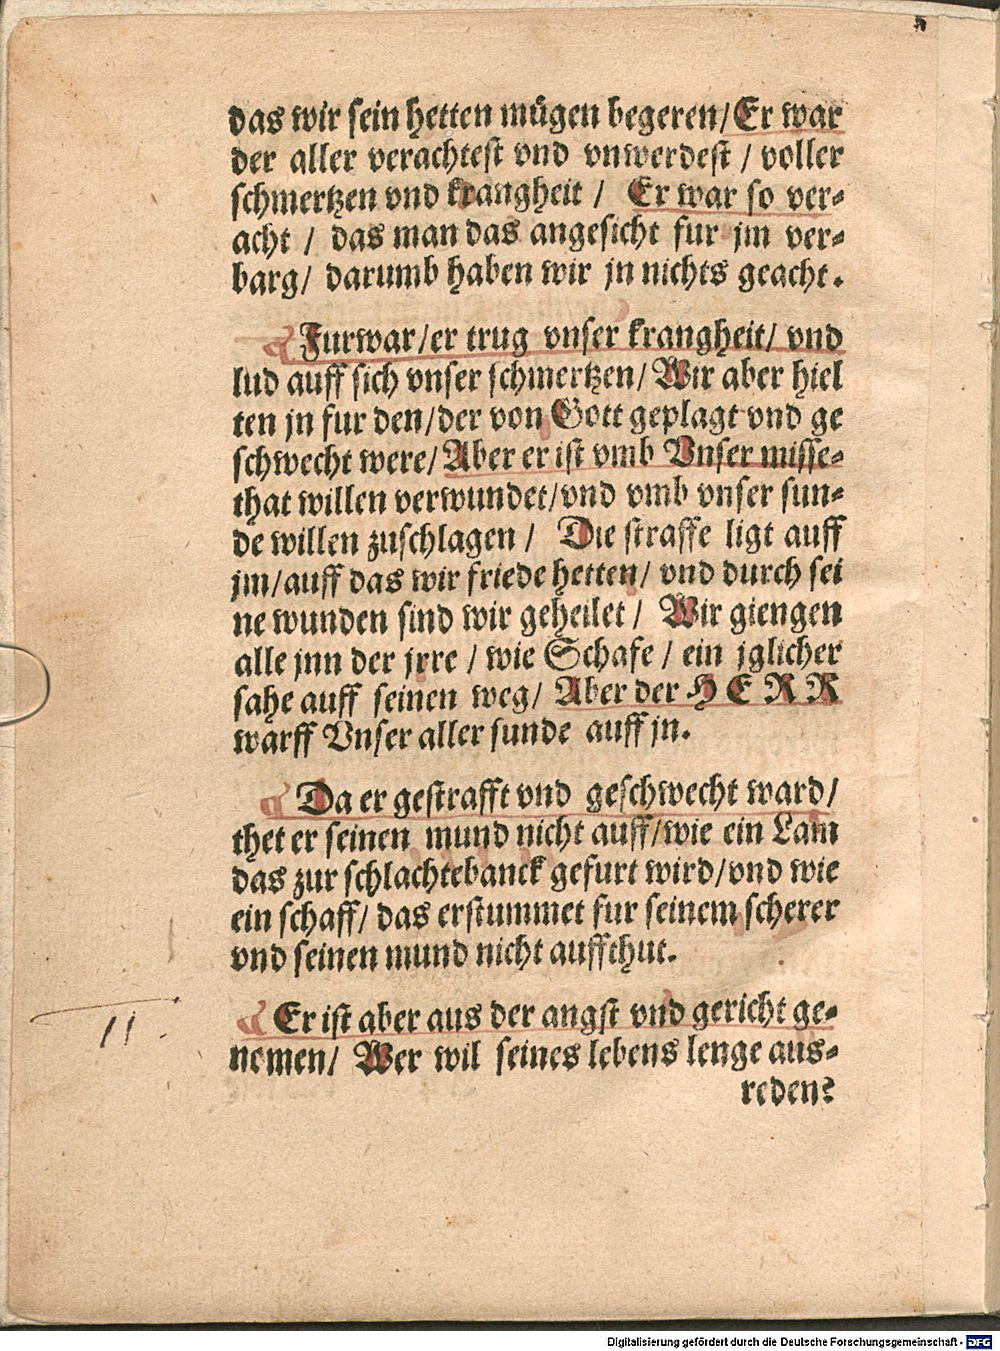 das wir sein hetten mügen begeren/Er war
der aller verachtest vnd vnwerdest / voller
schmertzen vnd krangheit / Er war so ver-
acht / das man das angesicht fur jm ver-
barg/ darumb haben wir jn nichts geacht.
Furwar/er trug vnser krangheit/ vnd
lud auff sich vnser schmertzen/ Wir aber hiel
ten jn fur den/der von Gott geplagt vnd ge
schwecht were/ Aber er ist vmb Vnser misse-
that willen verwundet/vnd vmb vnser sun-
de willen zuschlagen / Die straffe ligt auff
jm/auff das wir friede hetten/ vnd durch sei
ne wunden sind wir geheilet / Wir giengen
alle jnn der jrre / wie Schafe / ein jglicher
sahe auff seinen weg/ Aber der HERR
warff Vnser aller sunde auff jn.
Da er gestrafft vnd geschwecht ward/
thet er seinen mund nicht auff/wie ein Lam
das zur schlachtebanck gefurt wird/vnd wie
ein schaff/ das erstummet fur seinem scherer
vnd seinen mund nicht auffthut.
Er ist aber aus der angst vnd gericht ge-
nomen/ Wer wil seines lebens lenge aus-
reden?
II.
Digitalisierung gefördert durch die Deutsche Forschungsgemeinschaft - DFG